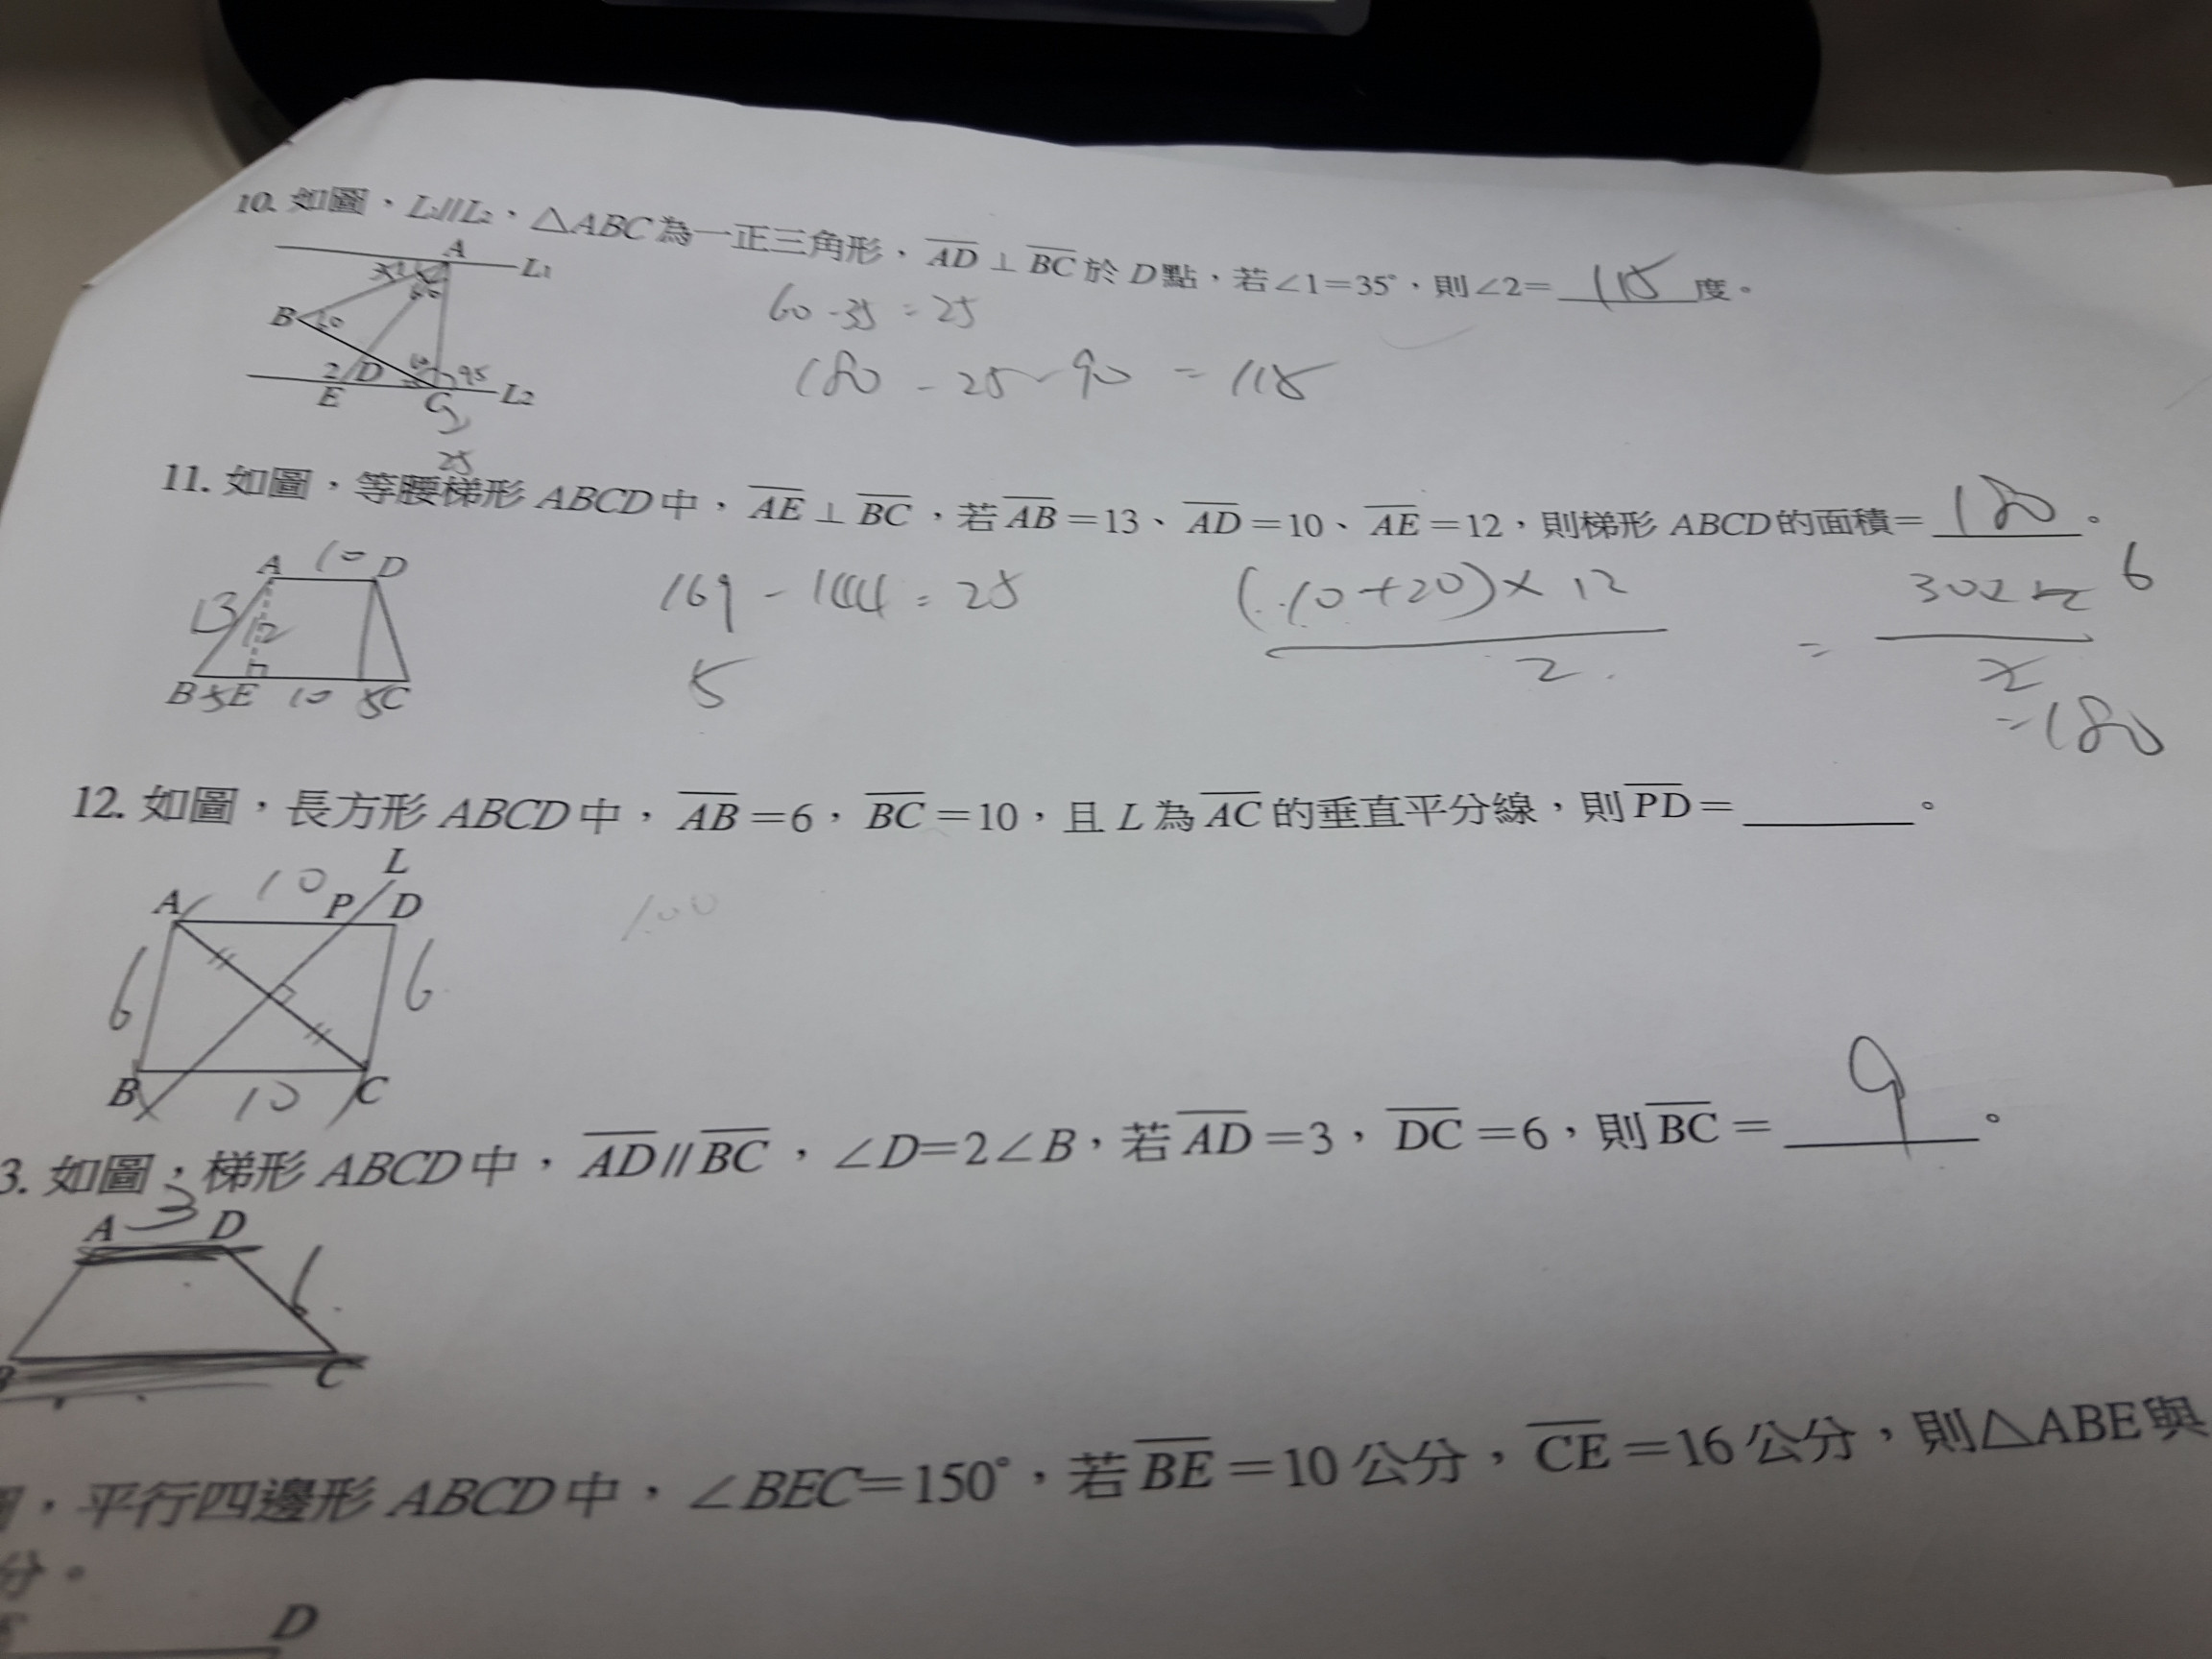 10. 如圖，L₁//L₂，△ABC為一正三角形，AD⊥BC於D點，若∠1=35°，則∠2=115度。
A
L1
60-35=25
B
180-25-90=115
2
D
95
E
C
L2
25
11. 如圖，等腰梯形ABCD中，AE⊥BC，若AB=13、AD=10、AE=12，則梯形ABCD的面積=180。
A 10 D
13
12
169-144=25
(10+20)×12
2
6
2
=180
5
B 5 E 10 5 C
12. 如圖，長方形ABCD中，AB=6，BC=10，且L為AC的垂直平分線，則PD=＿＿＿。
L
A 10 P D
100
6
6
B 10 C
3. 如圖，梯形ABCD中，AD//BC，∠D=2∠B，若AD=3，DC=6，則BC=9。
A 3 D
6
C
，平行四邊形ABCD中，∠BEC=150°，若BE=10公分，CE=16公分，則△ABE與
分。
D